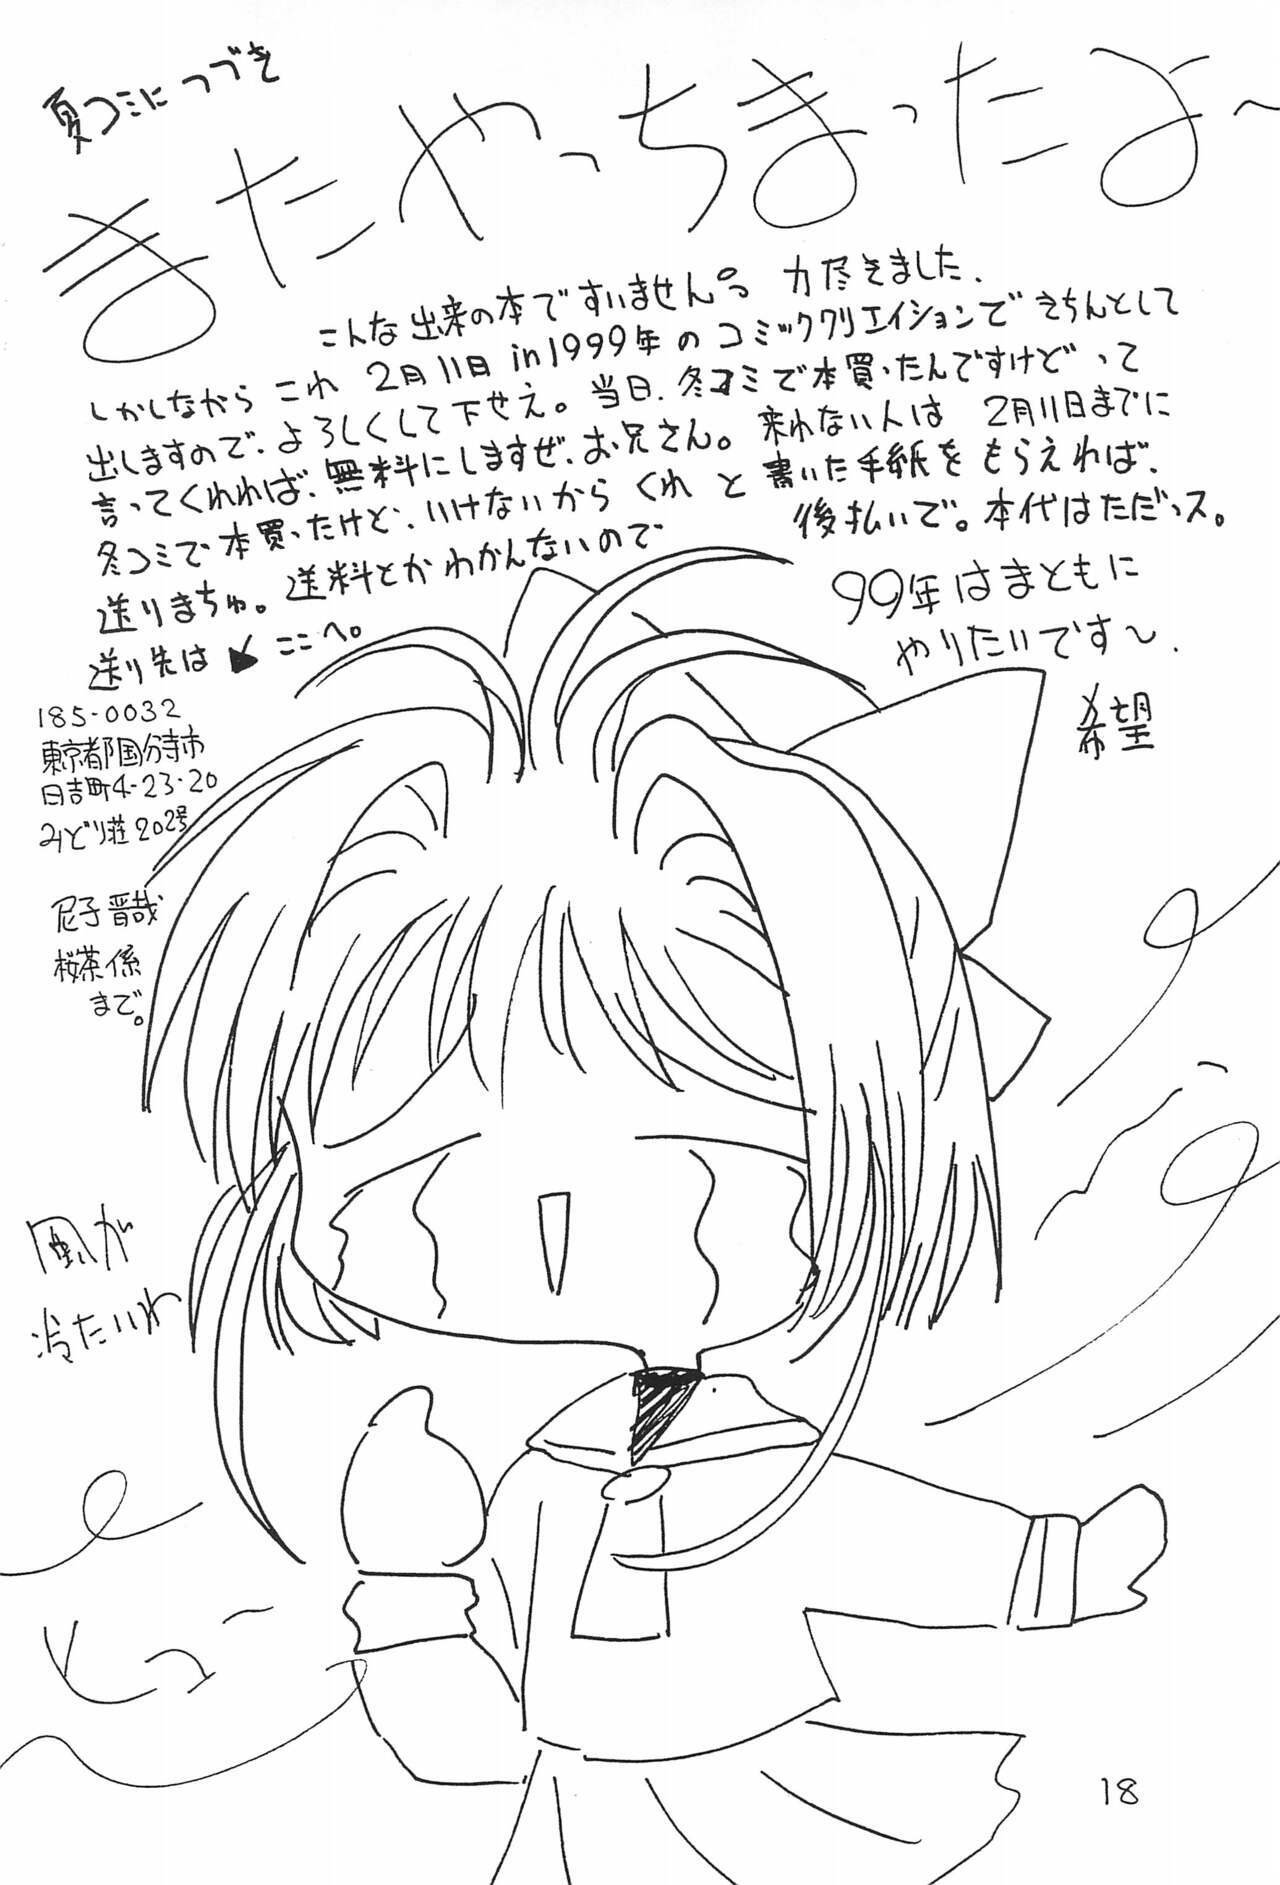 夏コミにつづき
またやっちまったよ〜
こんな出来の本ですいません。力尽きました.
しかしながら これ 2月11日 in 1999年のコミッククリエイションできちんとして
出しますので、よろしくして下せえ。当日、冬コミで本買ったんですけどって
言ってくれれば、無料にしますぜ、お兄さん。来れない人は 2月11日までに
冬コミで本買ったけど、いけないから くれ と書いた手紙をもらえれば、
送りまちゅ。送料とかわかんないので 後払いで。本代はただっス。
送り先は ここへ。
99年はまともに
やりたいです〜.
希望
185-0032
東京都国分寺市
日吉町4-23-20
みどり荘202号
尼子晋哉
桜茶係
まで。
風が
冷たいわ
ぴゅー
18